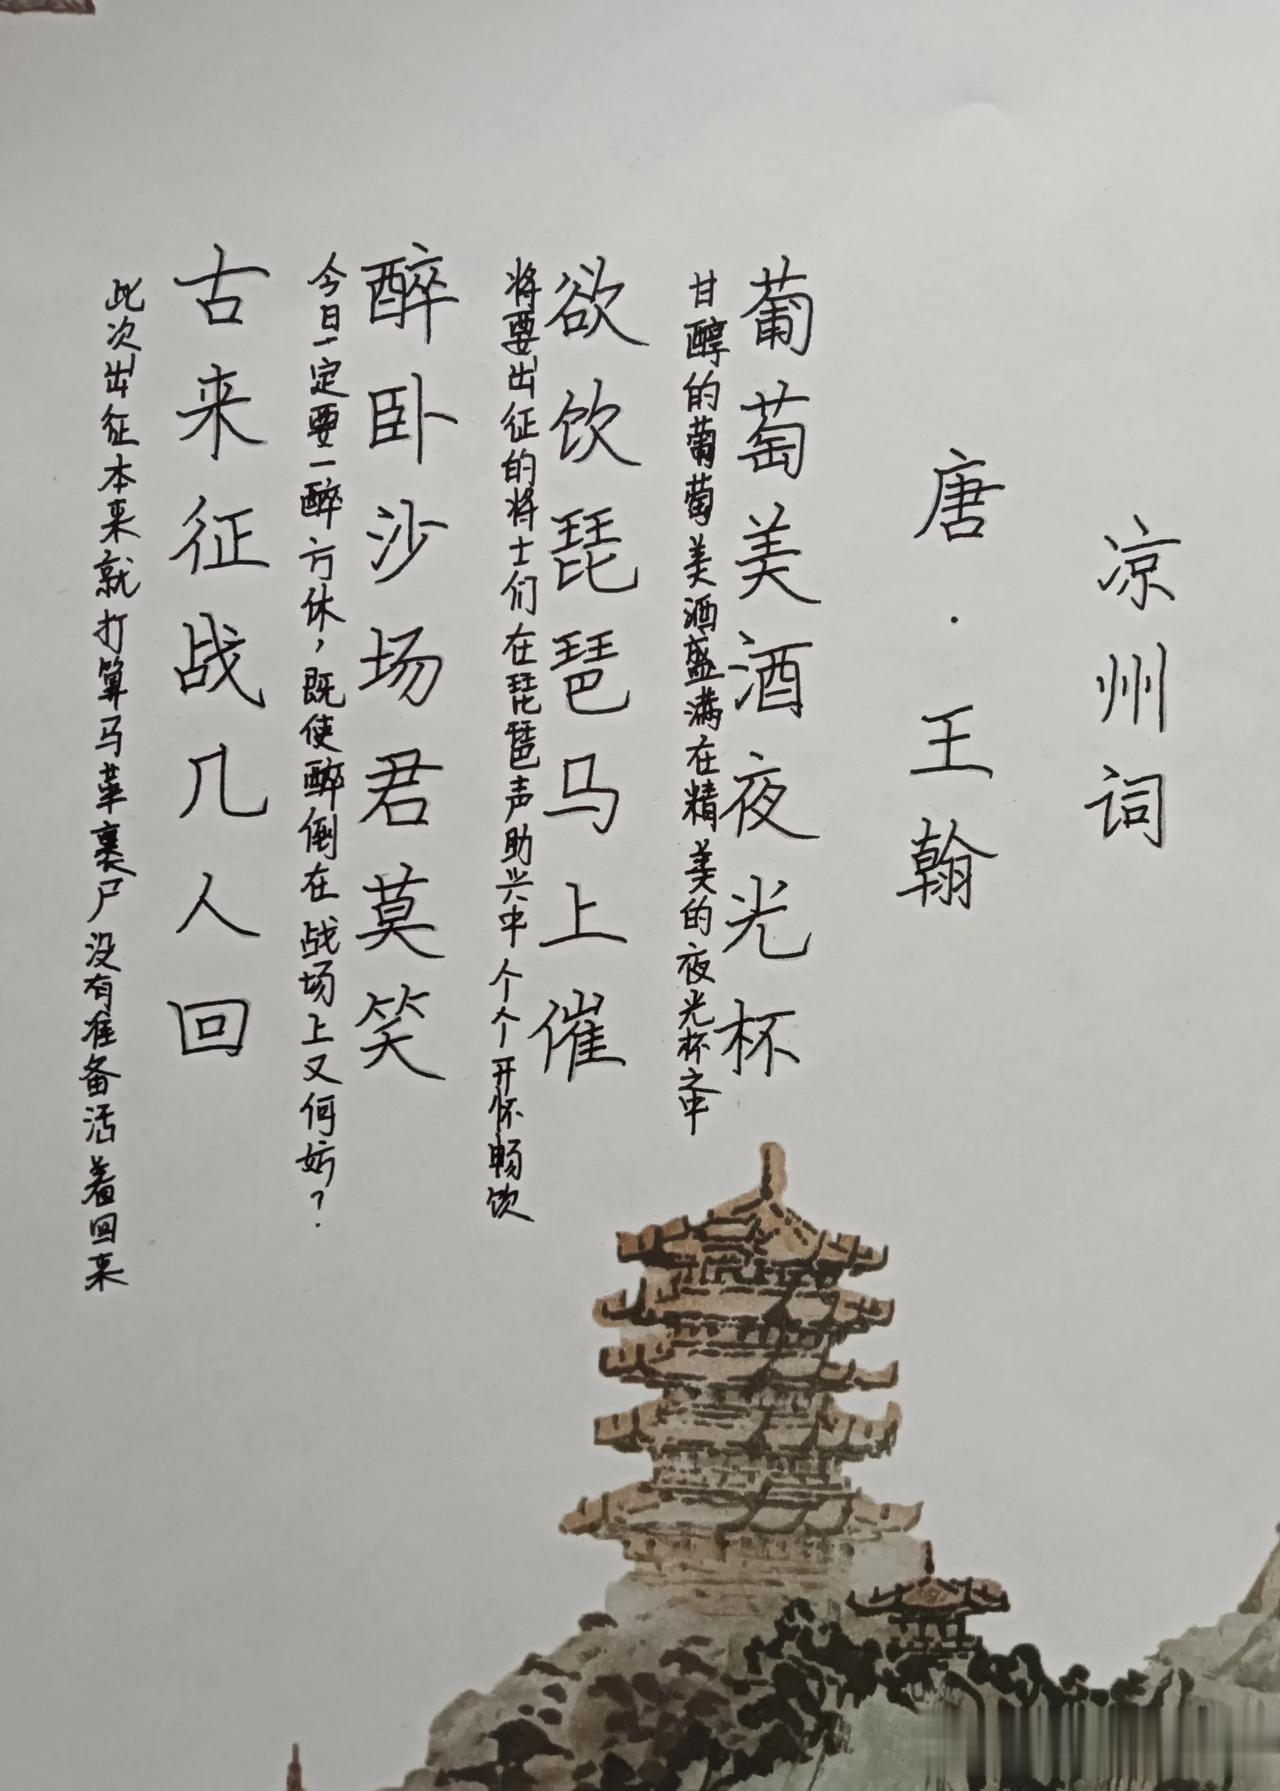 凉州词
唐·王翰
葡萄美酒夜光杯
甘醇的葡萄美酒盛满在精美的夜光杯之中
欲饮琵琶马上催
将要出征的将士们在琵琶声助兴中个个开怀畅饮
醉卧沙场君莫笑
今日一定要一醉方休，既使醉倒在战场上又何妨？
古来征战几人回
此次出征本来就打算马革裹尸没有准备活着回来